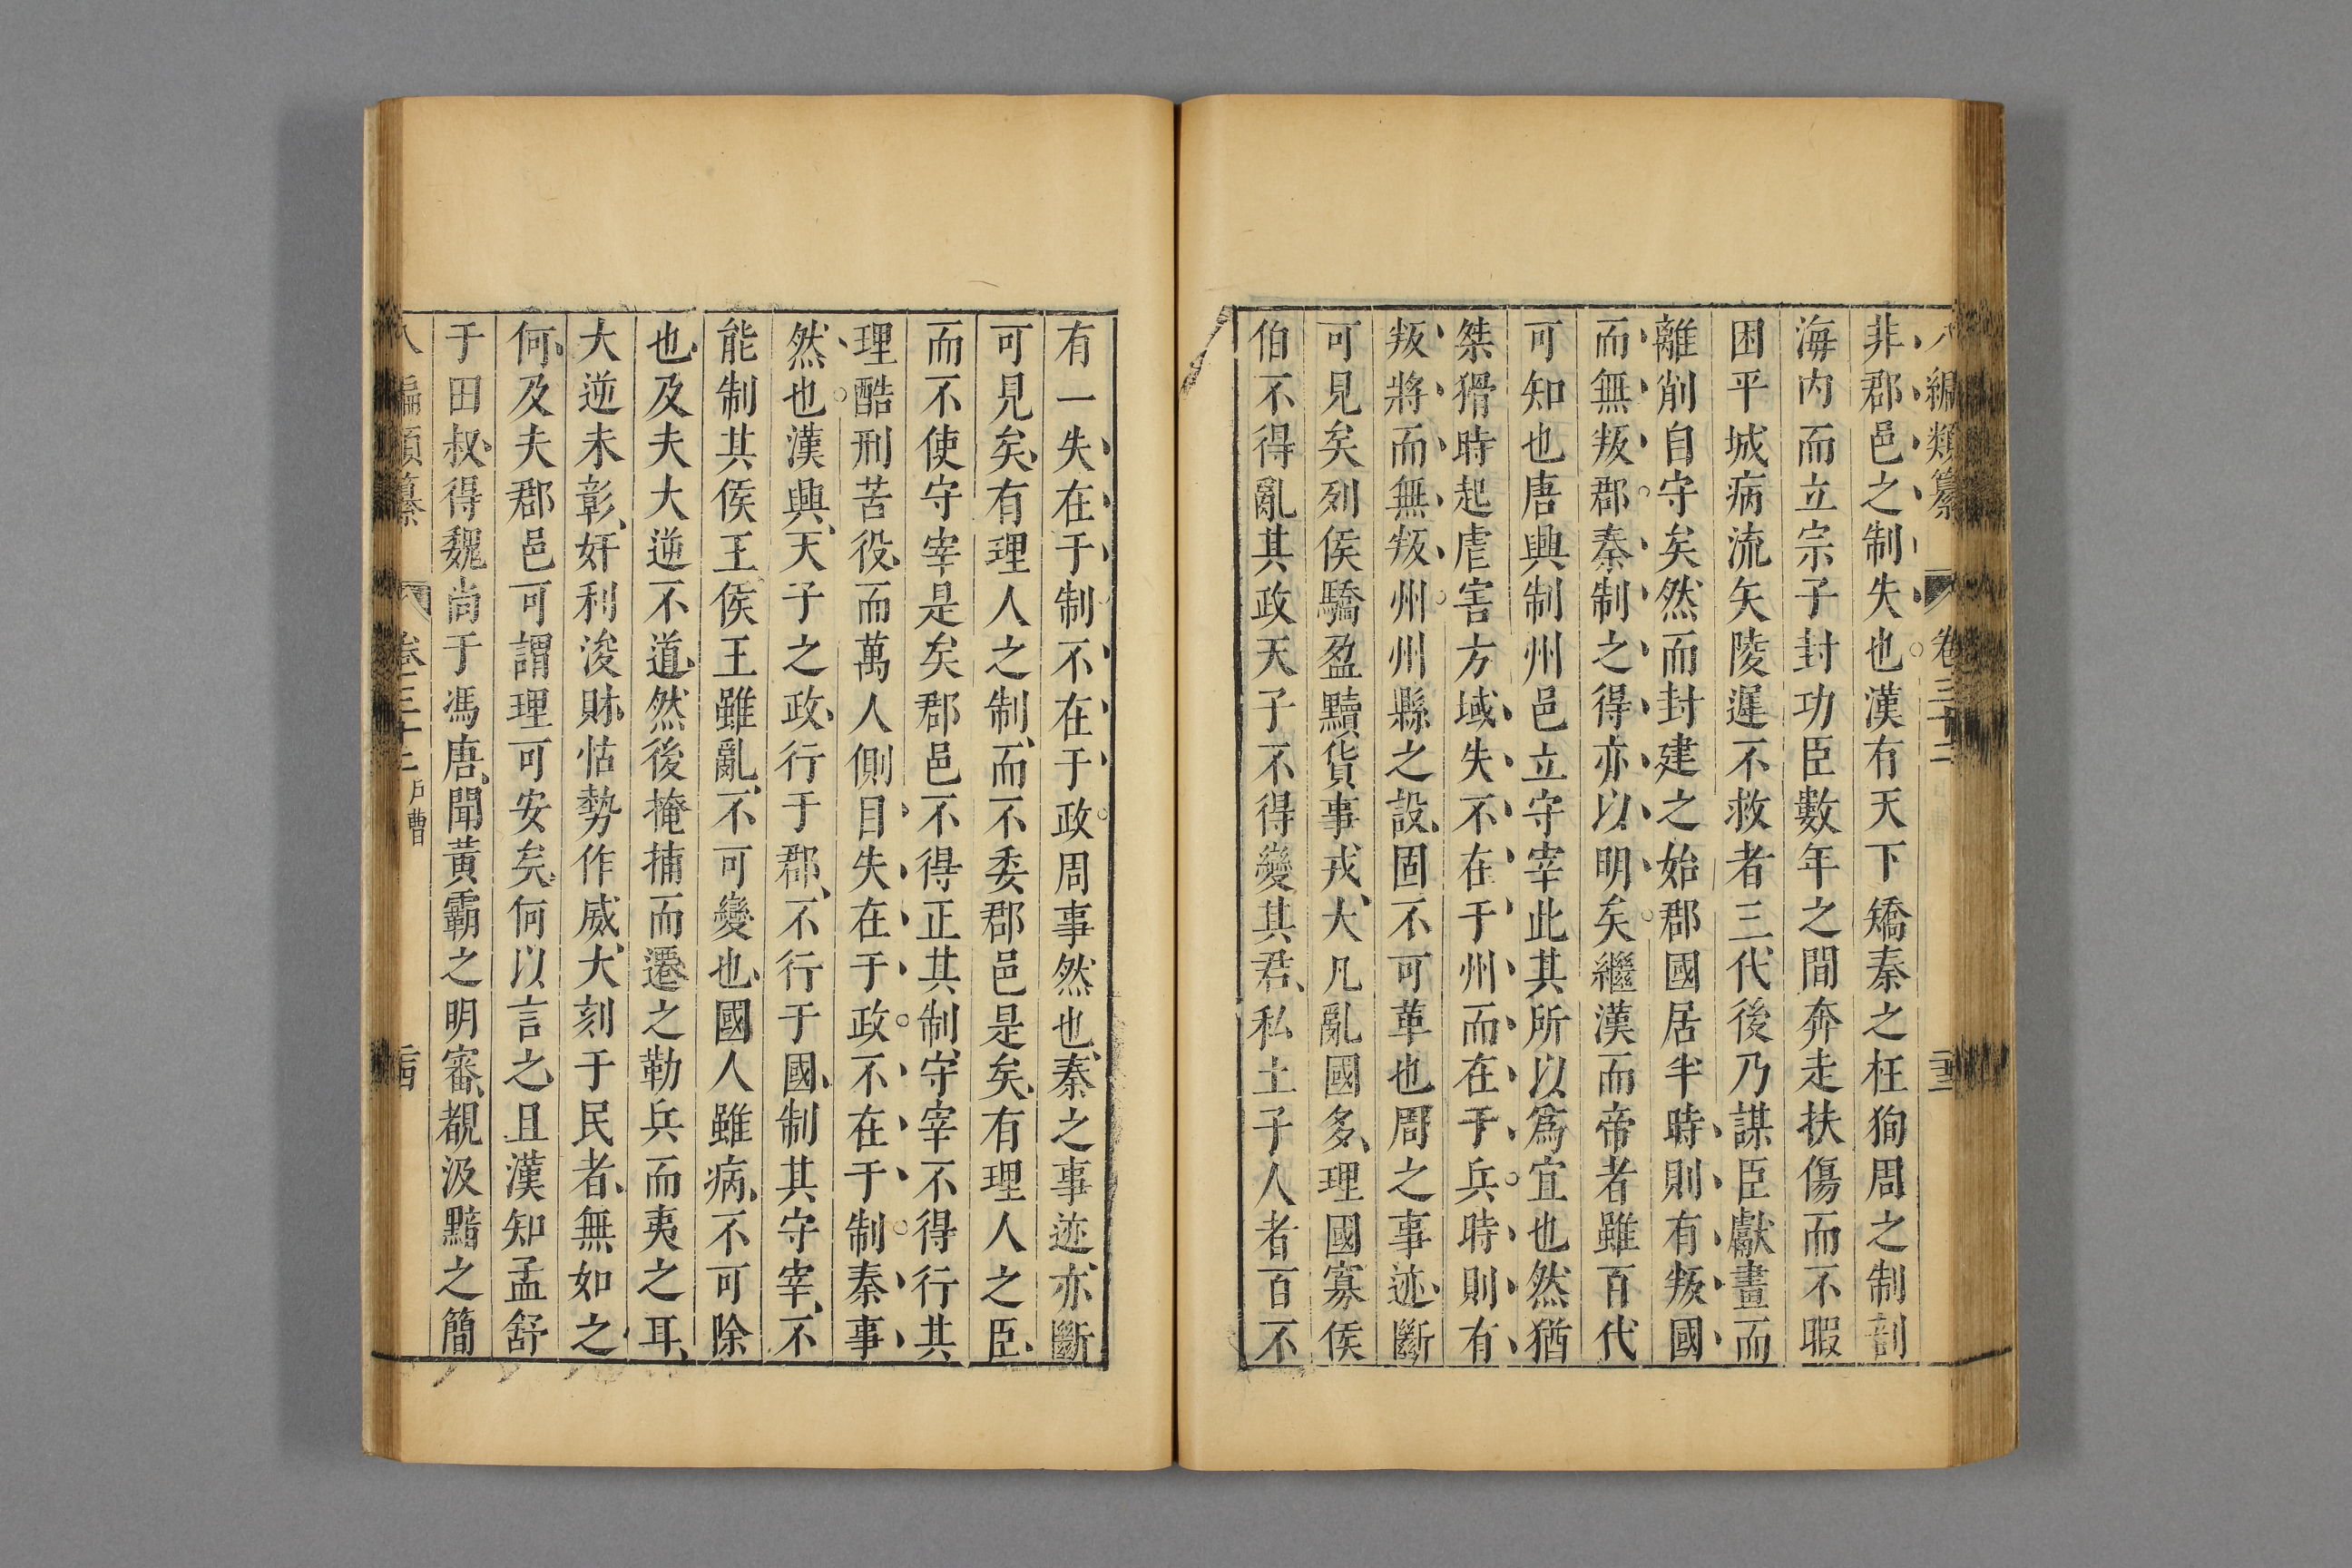 八編類纂 卷三十二 二十三
非郡邑之制失也漢有天下矯秦之枉狥周之制剖
海内而立宗子封功臣數年之間奔走扶傷而不暇
困平城病流矢陵遲不救者三代後乃謀臣獻畫而
離削自守矣然而封建之始郡國居半時則有叛國
而無叛郡秦制之得亦以明矣繼漢而帝者雖百代
可知也唐興制州邑立守宰此其所以爲宜也然猶
桀猾時起虐害方域失不在于州而在于兵時則有
叛將而無叛州州縣之設固不可革也周之事迹斷
可見矣列侯驕盈黷貨事戎大凡亂國多理國寡侯
伯不得亂其政天子不得變其君私土子人者百不
有一失在于制不在于政周事然也秦之事迹亦斷
可見矣有理人之制而不委郡邑是矣有理人之臣
而不使守宰是矣郡邑不得正其制守宰不得行其
理酷刑苦役而萬人側目失在于政不在于制秦事
然也漢興天子之政行于郡不行于國制其守宰不
能制其侯王侯王雖亂不可變也國人雖病不可除
也及夫大逆不道然後掩捕而遷之勒兵而夷之耳
大逆未彰奸利浚財怙勢作威大刻于民者無如之
何及夫郡邑可謂理可安矣何以言之且漢知孟舒
于田叔得魏尚于馮唐聞黃霸之明審覩汲黯之簡
八編類纂 卷三十二 户曹